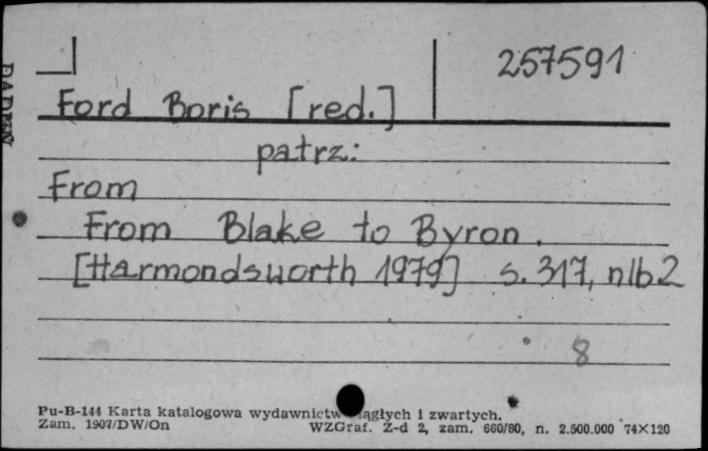 257591
Ford Boris [red.]
patrz:
From
From Blake to Byron.
[Harmondsworth 1979] s. 317, nlb 2
8
Pu-B-144 Karta katalogowa wydawnictw ciągłych i zwartych.
Zam. 1907/DW/On WZGraf. Z-d 2, zam. 660/80, n. 2.500.000 74×120